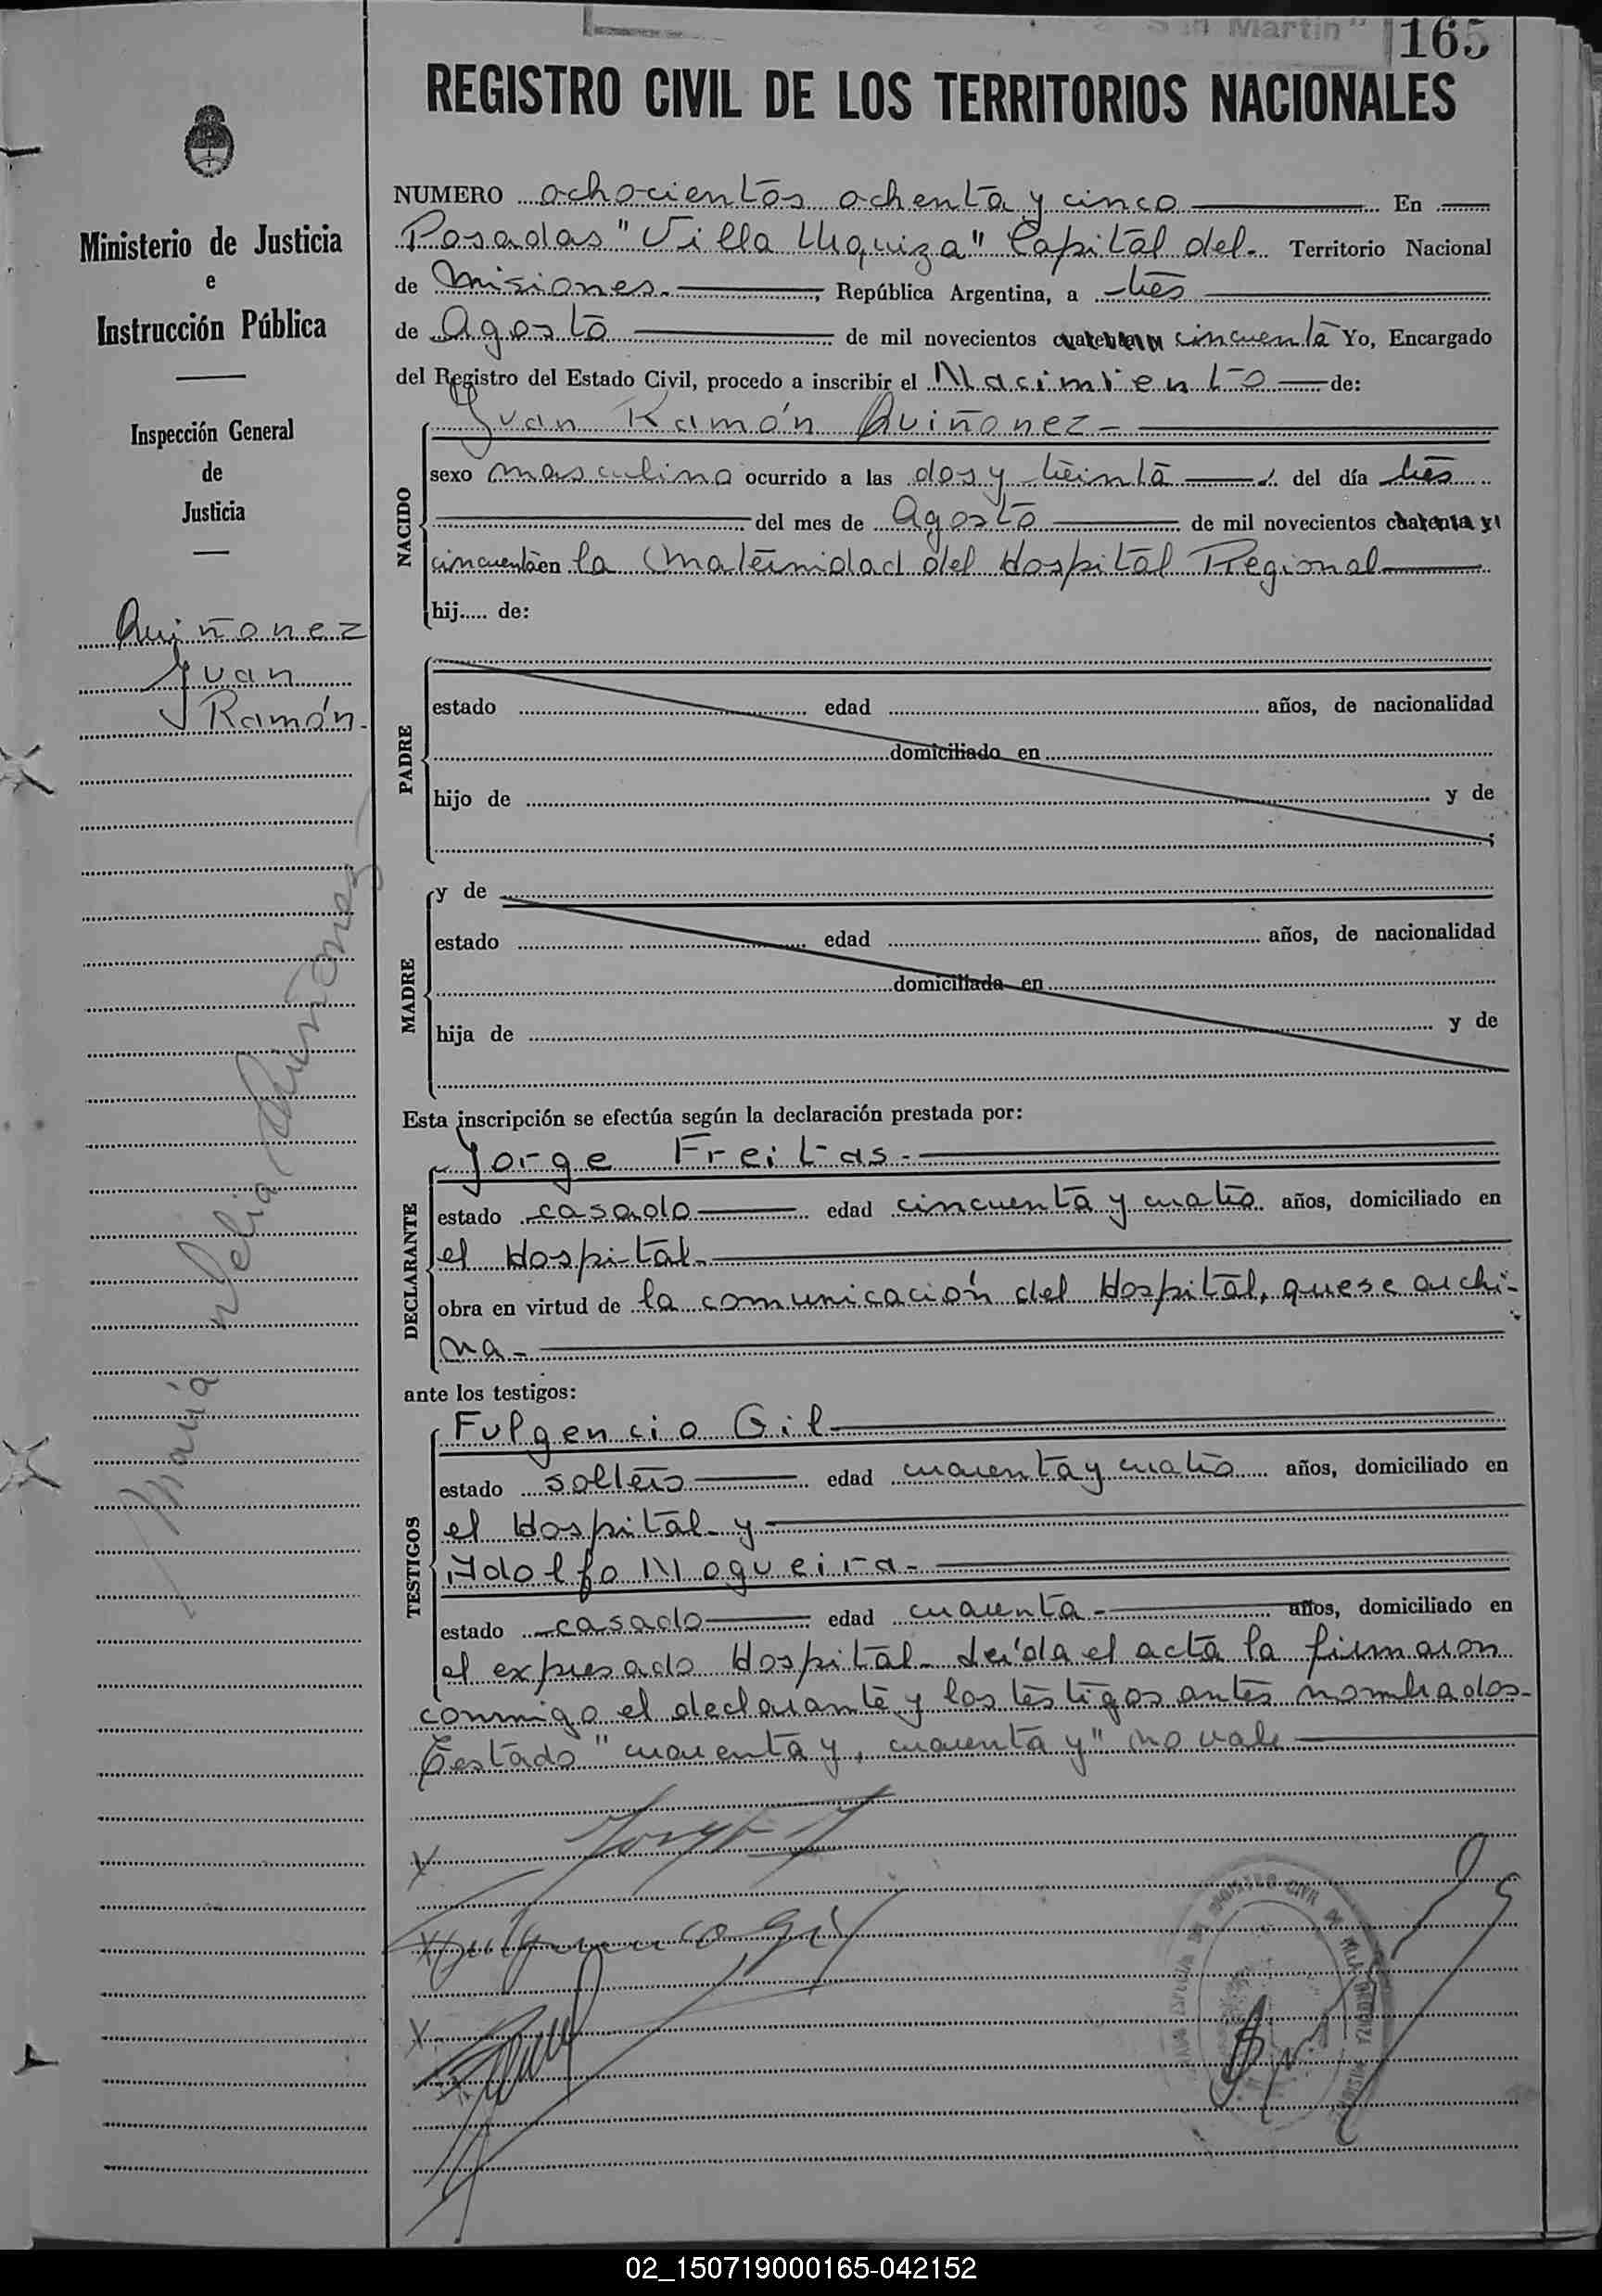 "San Martin" 165
REGISTRO CIVIL DE LOS TERRITORIOS NACIONALES
Ministerio de Justicia
e
Instrucción Pública
Inspección General
de
Justicia
Quiñonez
Juan
Ramón.
María Delia Quiñonez
NUMERO ochocientos ochenta y cinco En
Posadas "Villa Urquiza" Capital del Territorio Nacional
de Misiones. , República Argentina, a tres
de Agosto de mil novecientos cuarenta y cincuenta Yo, Encargado
del Registro del Estado Civil, procedo a inscribir el Nacimiento de:
NACIDO
Juan Ramón Quiñonez
sexo masculino ocurrido a las dos y treinta del día tres
del mes de Agosto de mil novecientos cuarenta y
cincuenta en la Maternidad del Hospital Regional
hij..... de:
PADRE
estado edad años, de nacionalidad
domiciliado en
hijo de y de
;
MADRE
y de
estado edad años, de nacionalidad
domiciliada en
hija de y de
Esta inscripción se efectúa según la declaración prestada por:
DECLARANTE
Jorge Freitas.
estado casado edad cincuenta y cuatro años, domiciliado en
el Hospital
obra en virtud de la comunicación del Hospital, que se archi-
va-
ante los testigos:
TESTIGOS
Fulgencio Gil
estado soltero edad cuarenta y cuatro años, domiciliado en
el Hospital y
Adolfo Nogueira
estado casado edad cuarenta años, domiciliado en
el expresado Hospital. Leída el acta la firmaron
conmigo el declarante y los testigos antes nombrados-
Testado "cuarenta y, cuarenta y" no vale
x Jorge F
x Fulgencio Gil
x
02_150719000165-042152